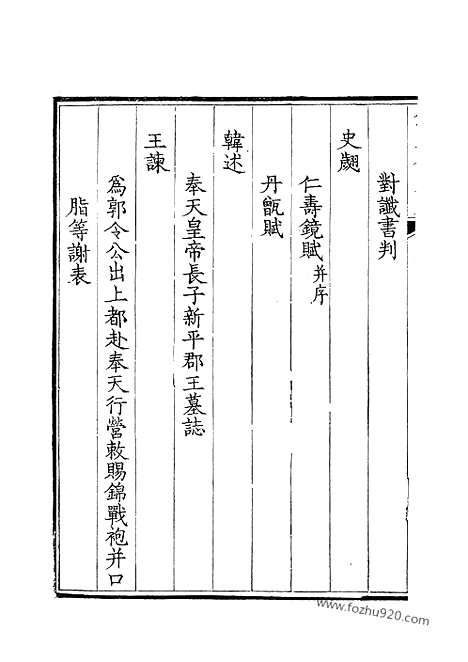 對讖書判
史翽
仁壽鏡賦并序
丹甑賦
韓述
奉天皇帝長子新平郡王墓誌
王諫
為郭令公出上都赴奉天行營敕賜錦戰袍并口
脂等謝表
www.fozhu920.com